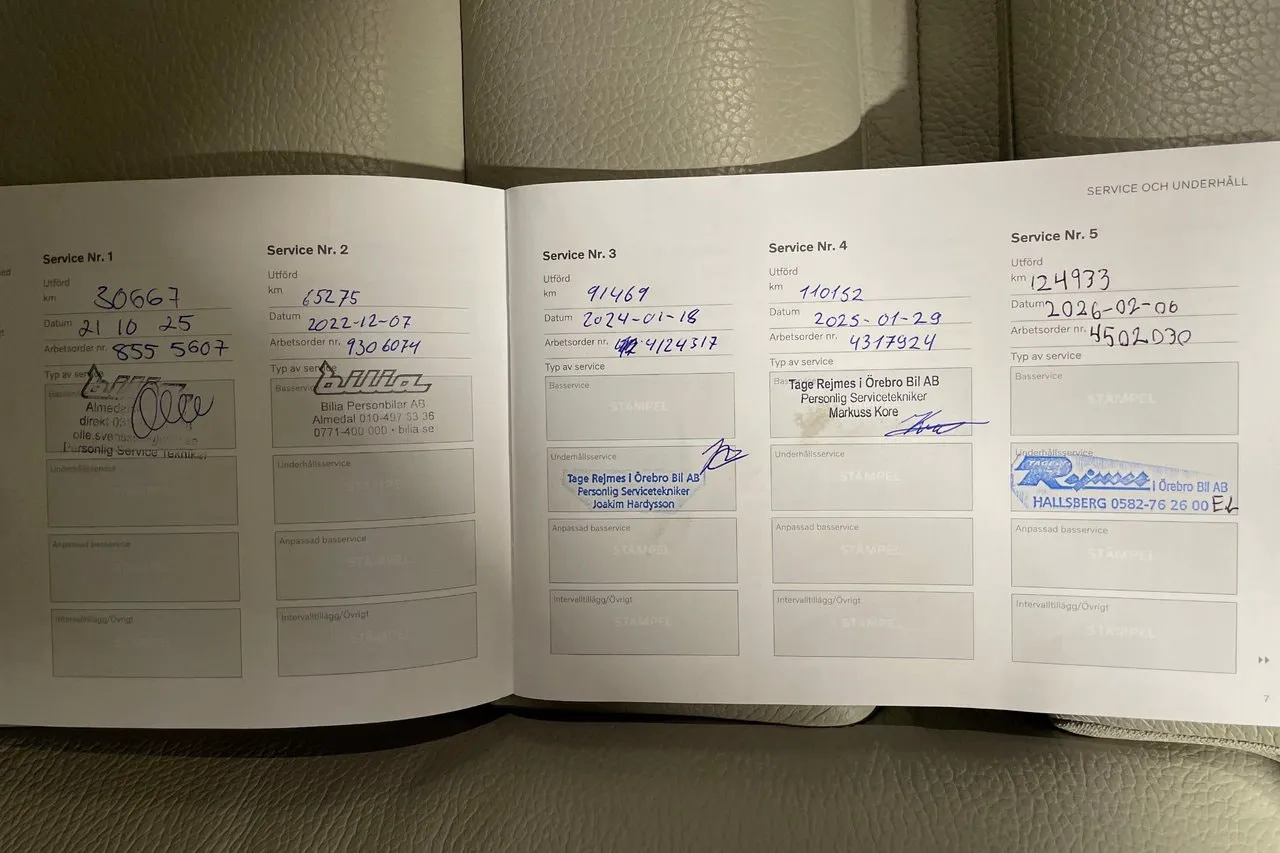 SERVICE OCH UNDERHÅLL
Service Nr. 1
Utförd
km 30667
Datum 21 10 25
Arbetsorder nr. 855 5607
Typ av
bilia
Almed
direkt 03
olle.svens
Personlig Service Tekniker
Underhållsservice
Anpassad basservice
Intervalltillägg/Övrigt
Service Nr. 2
Utförd
km 65275
Datum 2022-12-07
Arbetsorder nr. 9306074
Typ av service
Basservice
bilia
Bilia Personbilar AB
Almedal 010-497 53 36
0771-400 000 • bilia.se
Underhållsservice
Anpassad basservice
STÄMPEL
Intervalltillägg/Övrigt
STÄMPEL
Service Nr. 3
Utförd
km 91469
Datum 2024-01-18
Arbetsorder nr. 4124317
Typ av service
Basservice
STÄMPEL
Underhållsservice
Tage Rejmes i Örebro Bil AB
Personlig Servicetekniker
Joakim Hardysson
Anpassad basservice
STÄMPEL
Intervalltillägg/Övrigt
STÄMPEL
Service Nr. 4
Utförd
km 110152
Datum 2025-01-29
Arbetsorder nr. 4317924
Typ av service
Bas
Tage Rejmes i Örebro Bil AB
Personlig Servicetekniker
Markuss Kore
Underhållsservice
STÄMPEL
Anpassad basservice
STÄMPEL
Intervalltillägg/Övrigt
STÄMPEL
Service Nr. 5
Utförd
km 124933
Datum 2026-02-06
Arbetsorder nr. 4502030
Typ av service
Basservice
STÄMPEL
Underhållsservice
TAGE Rejmes i Örebro Bil AB
HALLSBERG 0582-76 26 00
Anpassad basservice
STÄMPEL
Intervalltillägg/Övrigt
STÄMPEL
7